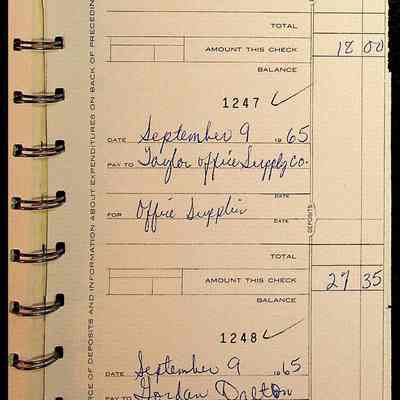 TOTAL
AMOUNT THIS CHECK 18 00
BALANCE
1247 ✓
DATE September 9 1965
PAY TO Taylor Office Supply Co.
DATE
FOR Office Supplies
DATE
DEPOSITS
TOTAL
AMOUNT THIS CHECK 27 35
BALANCE
1248 ✓
DATE September 9 1965
PAY TO Gordan Dalton
CE OF DEPOSITS AND INFORMATION ABOUT EXPENDITURES ON BACK OF PRECEDIN